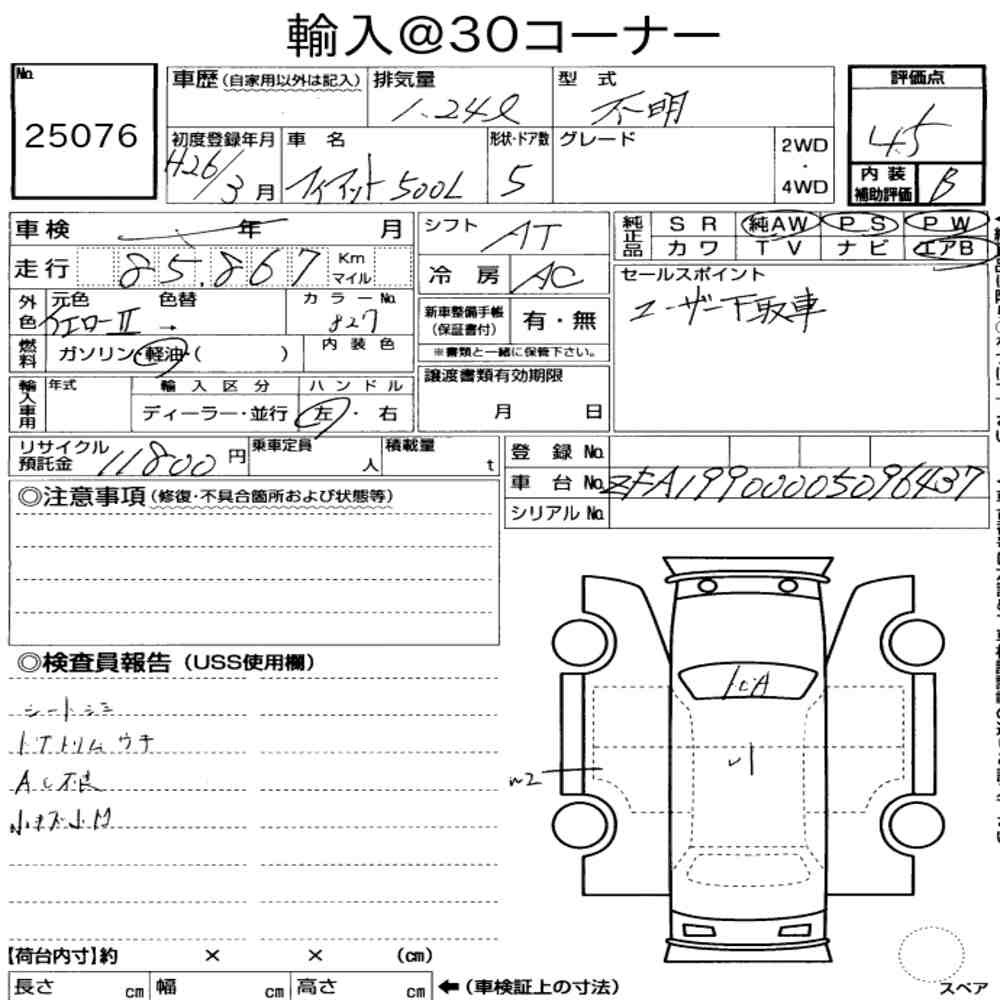 輸入@30コーナー
No.
25076
車歴(自家用以外は記入)
排気量
1.24ℓ
型 式
不明
評価点
4.5
初度登録年月
H26/3月
車 名
フィアット500L
形状・ドア数
5
グレード
2WD
・
4WD
内 装
補助評価
B
車検 年 月
走行 85,867 Km マイル
シフト
AT
冷 房
AC
純正品
SR 純AW PS PW
カワ TV ナビ エアB
セールスポイント
ユーザー下取車
外色
元色
イエローII
色替
→
カラーNo.
827
燃料
ガソリン・軽油・( )
内 装 色
新車整備手帳
(保証書付)
有・無
※書類と一緒に保管下さい。
輸入車用
年式
輸入区分
ディーラー・並行
ハンドル
左・右
譲渡書類有効期限
月 日
リサイクル
預託金
11800円
乗車定員
人
積載量
t
登 録 No.
車 台 No. ZFA19900005096437
シリアル No.
◎注意事項(修復・不具合箇所および状態等)
◎検査員報告(USS使用欄)
シートシミ
ドアトリムウチ
AC不良
小キズ小凹
【荷台内寸】約 × × (cm)
長さ cm 幅 cm 高さ cm
←(車検証上の寸法)
スペア